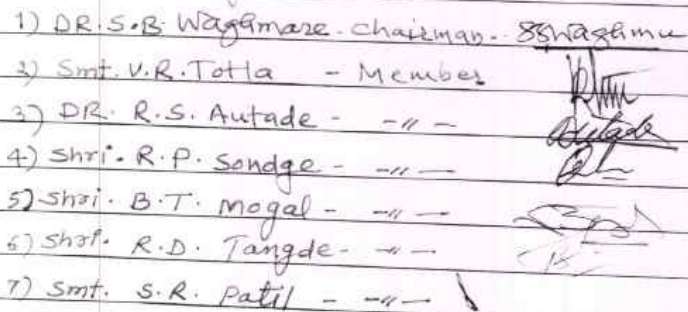 1) DR. S.B. Waghmare. Chairman.. SBWaghmu
2) Smt. V.R. Totla - Member
3) DR. R.S. Autade - -〃-
4) Shri. R.P. Sondge - -〃-
5) Shri. B.T. Mogal - -〃-
6) Shri. R.D. Tangde - -〃-
7) Smt. S.R. Patil - -〃-